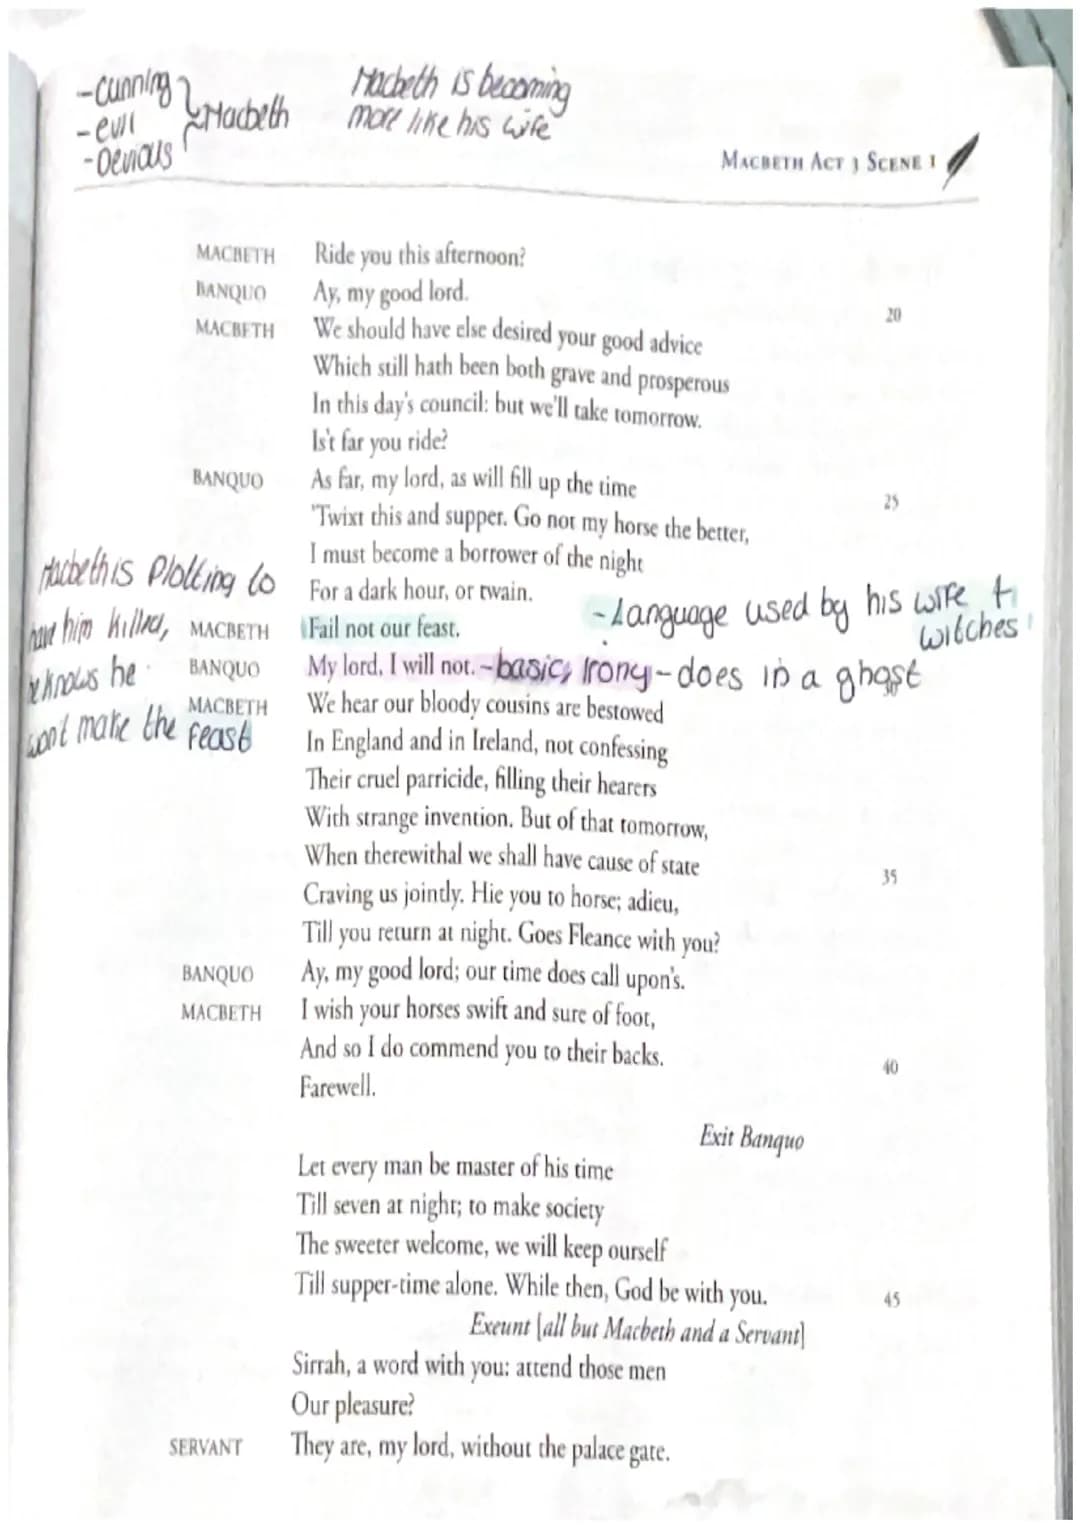 -cunning
-evil
-Devious
Macbeth
Macbeth is becoming
more like his wife
MACBETH ACT 3 SCENE 1
MACBETH Ride you this afternoon?
BANQUO Ay, my good lord.
20
MACBETH We should have else desired your good advice
Which still hath been both grave and prosperous
In this day's council: but we'll take tomorrow.
Is't far you ride?
BANQUO As far, my lord, as will fill up the time
25
'Twixt this and supper. Go not my horse the better,
I must become a borrower of the night
For a dark hour, or twain.
Macbeth is Plotting to
have him killed,
he knows he
wont make the feast
-Language used by his wife +
witches
MACBETH Fail not our feast.
BANQUO My lord, I will not. -basic, Irony-does in a ghost
30
MACBETH We hear our bloody cousins are bestowed
In England and in Ireland, not confessing
Their cruel parricide, filling their hearers
With strange invention. But of that tomorrow,
When therewithal we shall have cause of state
35
Craving us jointly. Hie you to horse; adieu,
Till you return at night. Goes Fleance with you?
BANQUO Ay, my good lord; our time does call upon's.
MACBETH I wish your horses swift and sure of foot,
And so I do commend you to their backs.
40
Farewell.
Exit Banquo
Let every man be master of his time
Till seven at night; to make society
The sweeter welcome, we will keep ourself
Till supper-time alone. While then, God be with you.
45
Exeunt [all but Macbeth and a Servant]
Sirrah, a word with you: attend those men
Our pleasure?
SERVANT They are, my lord, without the palace gate.